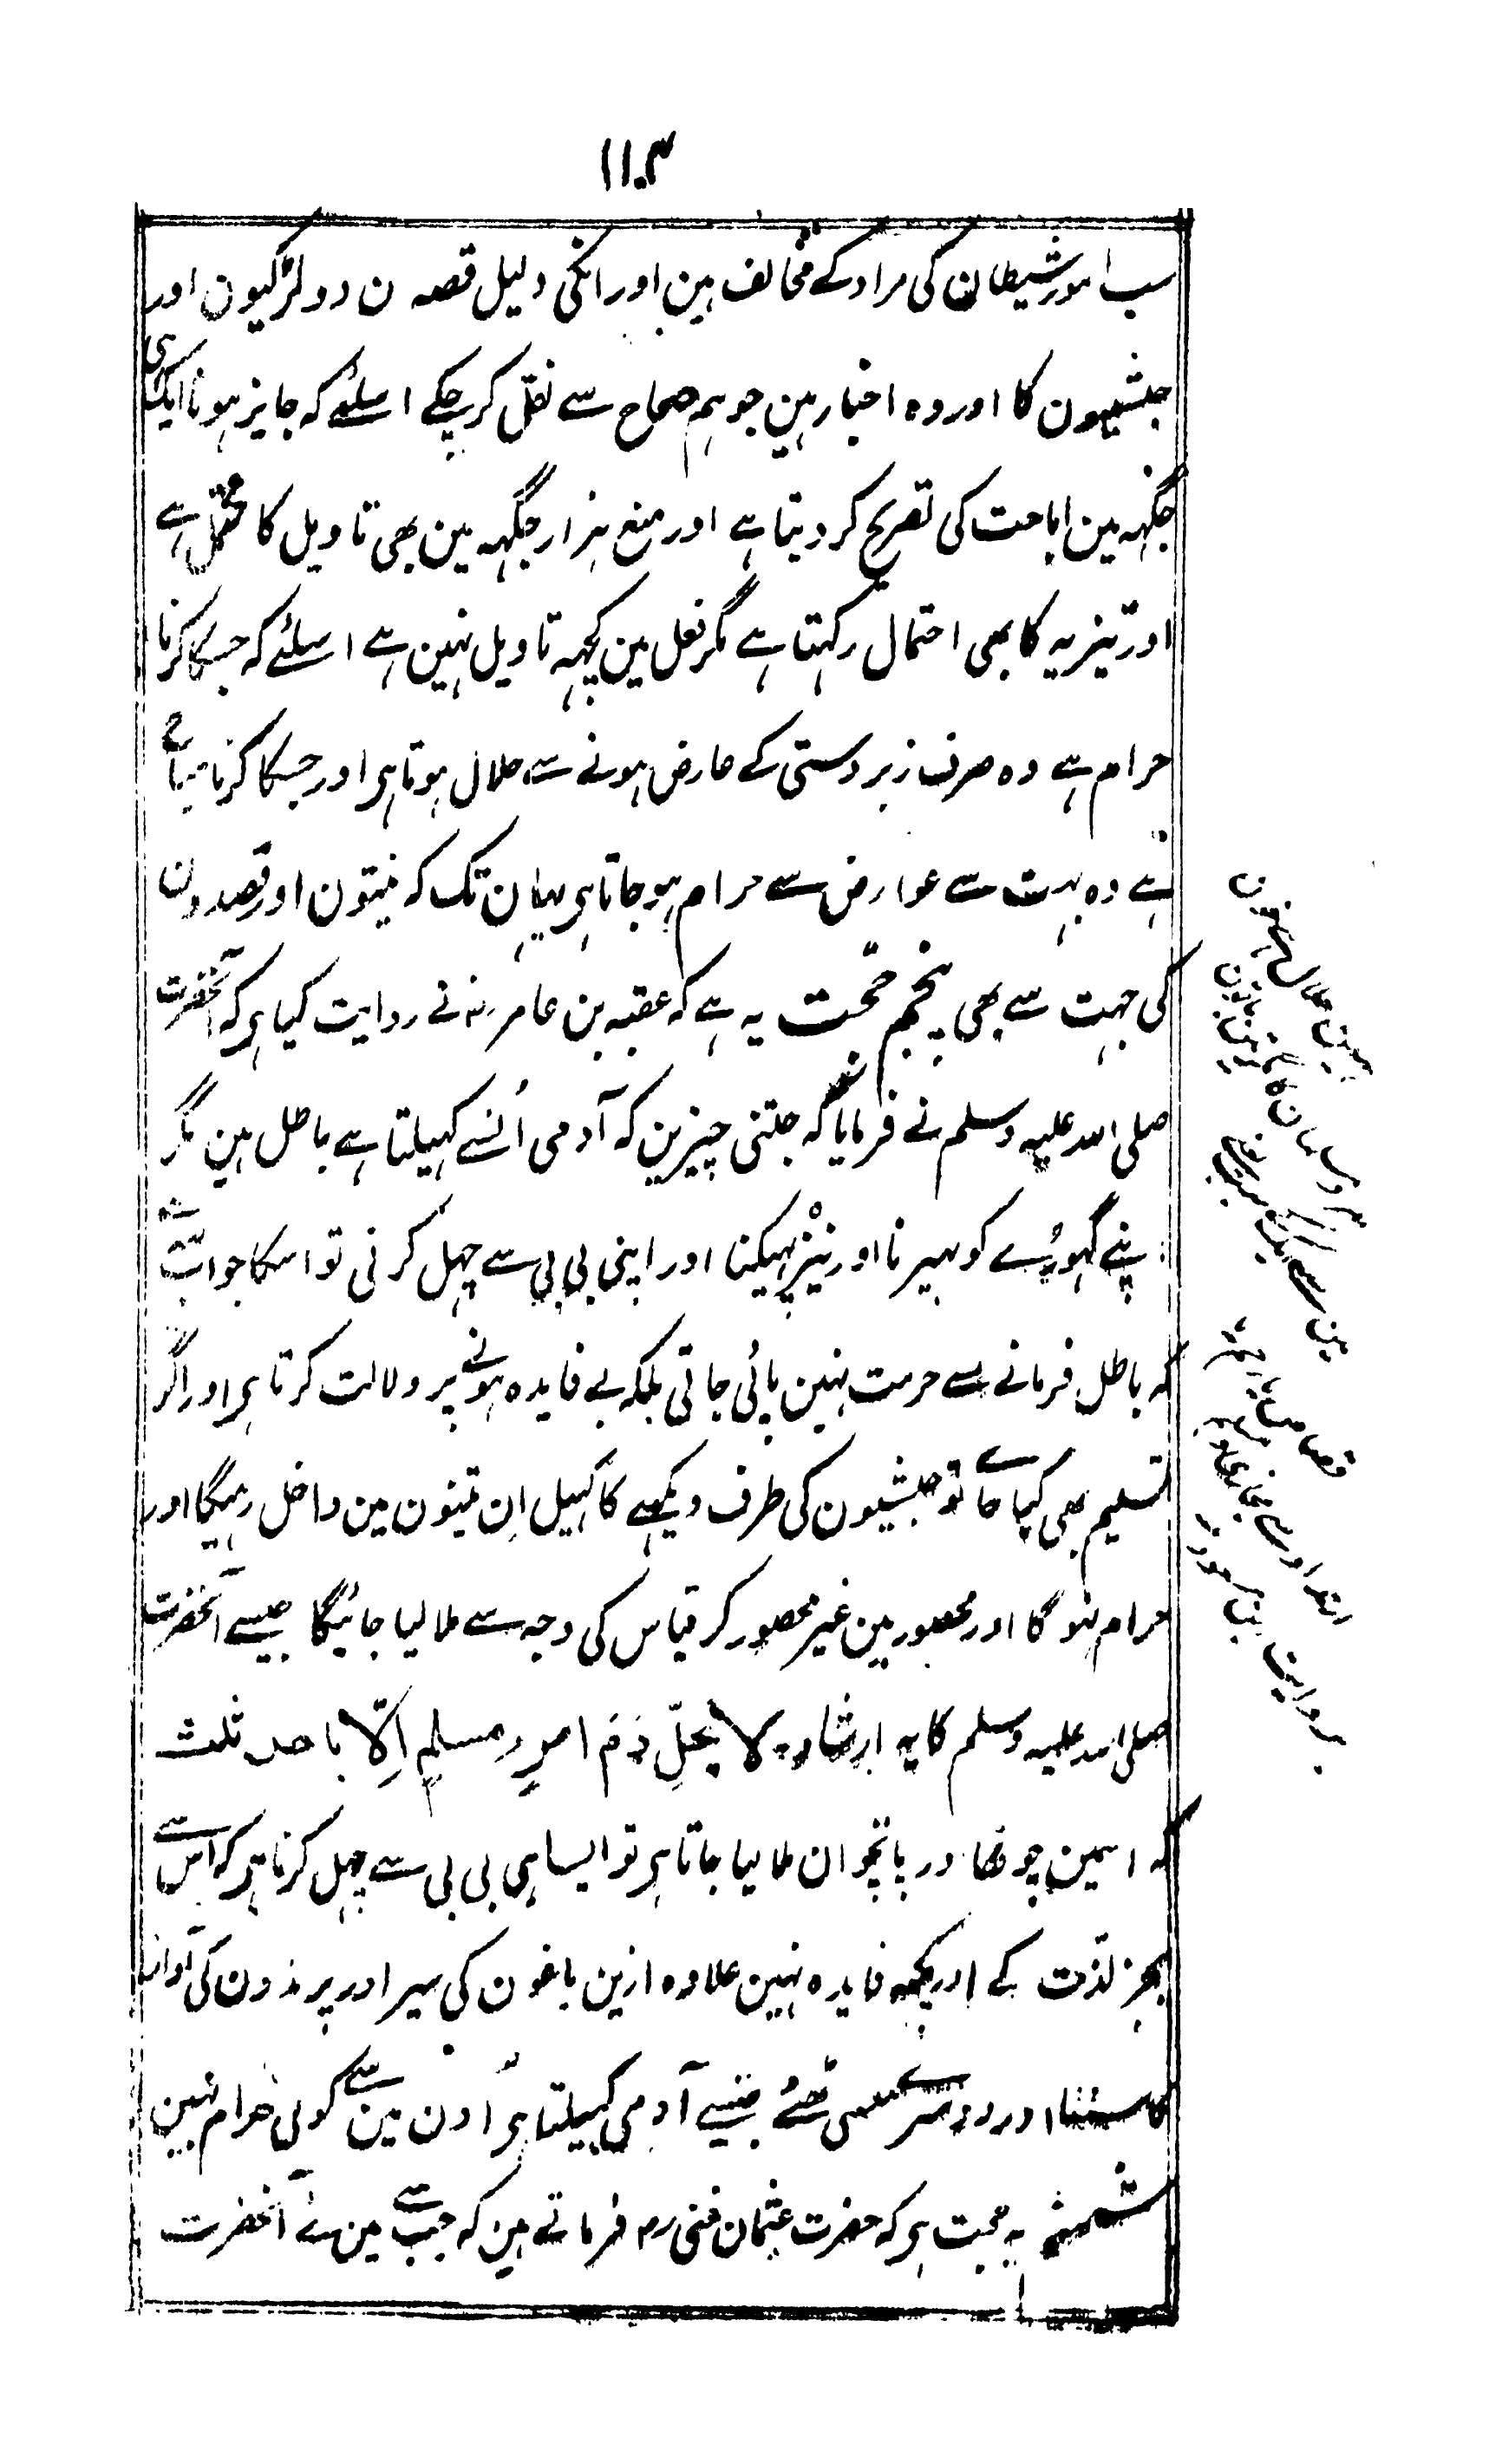 ۱۱۰۳
سب امور شیطان کی مراد کے مخالف ہین اور انکی دلیل قصہ ن دو لڑکیون اور
حبشیون کا اور وہ اخبار ہین جو ہم صحاح سے نقل کر چکے اسلئے کہ جایز ہونا ایک ہی
جگہہ مین اباحت کی تصریح کر دیتا ہے اور منع ہزار جگہہ مین بھی تاویل کا محتمل ہے
اور تنزیہ کا بھی احتمال رکہتا ہے مگر فعل مین کچہہ تاویل نہین ہے اسلئے کہ جسکا کرنا
حرام ہے وہ صرف زبردستی کے عارض ہونے سے حلال ہوتا ہی اور جسکا کرنا مباح
ہے وہ بہت سے عوارض سے حرام ہو جاتا ہی یہان تک کہ نیتون اور قصدون
کی جہت سے بھی پنجم حجت یہ ہے کہ عقبہ بن عامر رض نے روایت کیا ہی کہ آنحضرت
صلی اللہ علیہ وسلم نے فرمایا کہ جتنی چیزین کہ آدمی اُنسے کہیلتا ہے باطل ہین مگر
اپنے گہوڑے کو پہیرنا اور تیر پہیکنا اور اپنی بی بی سے چہل کرنی تو اسکا جواب یہ ہے
کہ باطل فرمانے سے حرمت نہین پائی جاتی بلکہ بے فایدہ ہونے پر دلالت کرتا ہی اور اگر
تسلیم بھی کیا جائے تو حبشیون کی طرف دیکہے کا کہیل اِن تینون مین داخل رہیگا اور
حرام نہوگا اور محصور مین غیر محصور کر قیاس کی وجہ سے ملا لیا جائیگا جیسے آنحضرت
صلی اللہ علیہ وسلم کا یہ ارشاد ہے لا یحلّ دَم امرءٍ مسلمٍ اِلّا باحدی ثلٰث
کہ اسمین چوتھا اور پانچوان ملا لیا جاتا ہی تو ایسا ہی بی بی سے چہل کرنا ہی کہ اس سے
بجز لذت کے اور کچہہ فایدہ نہین علاوہ ازین باغون کی سیر اور پرندون کی آواز
کا سننا اور دوسرے ہنسی ٹھٹے جنسے آدمی کہیلتا ہی اون مین سے کوئی حرام نہین
ششم یہ حجت ہی کہ حضرت عثمان غنی رض فرماتے ہین کہ جب سے مین نے آنحضرت